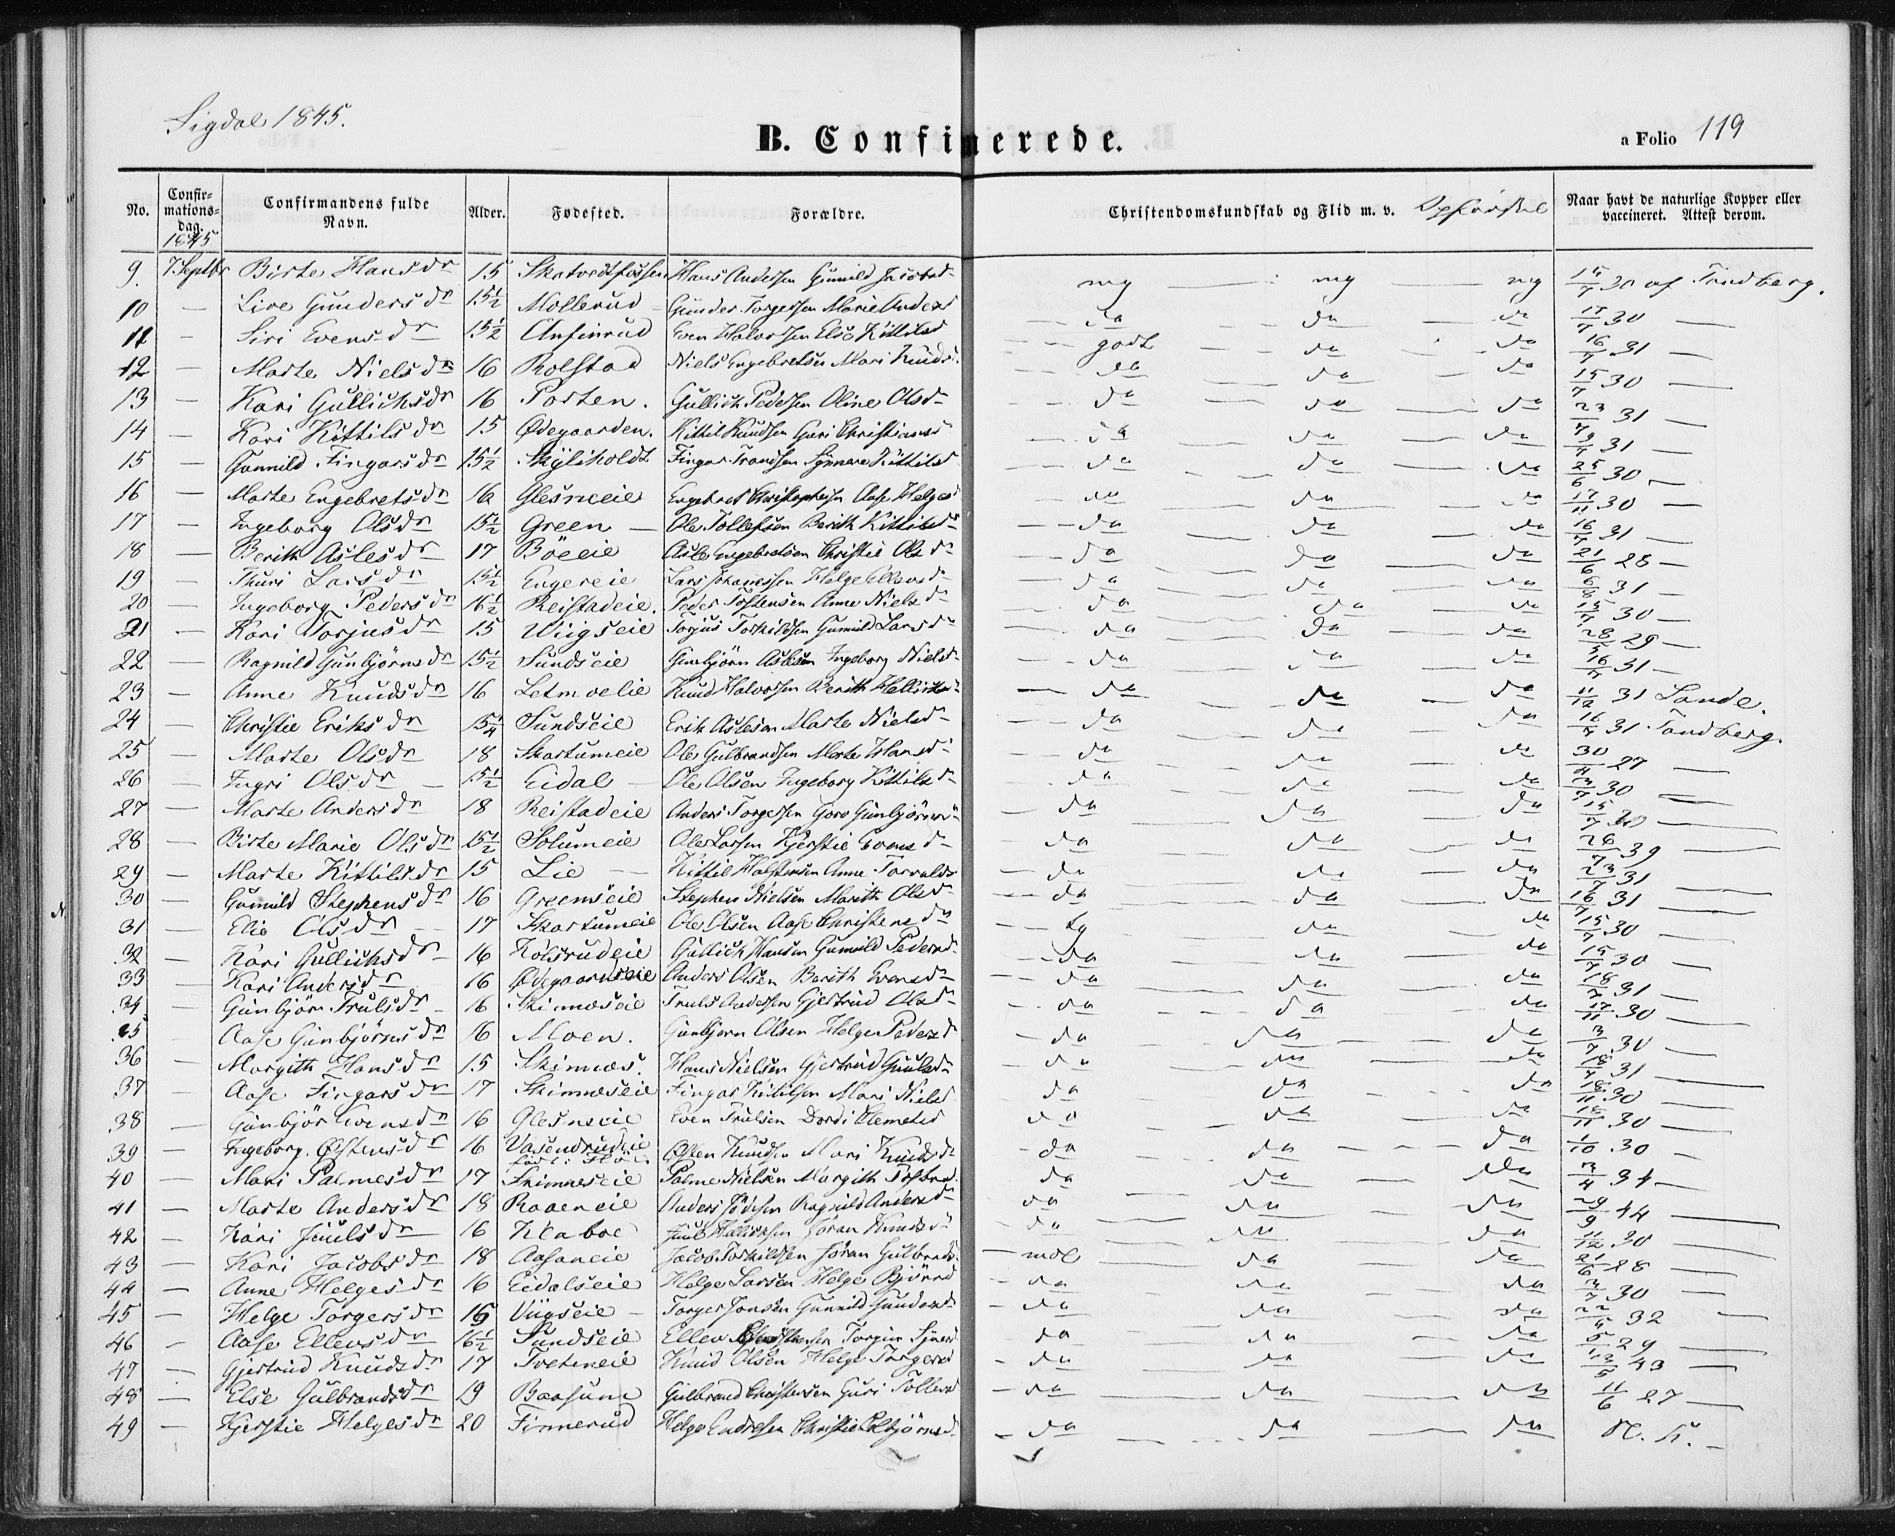 Sigdal 1845.
B. Confirmerede.
a Folio 119
No. Confirmations-dag. Confirmandens fulde Navn. Alder. Fødested. Forældre. Christendomskundskab og Flid m. v. Naar havt de naturlige Kopper eller vaccineret. Attest derom.
1845
9. 7. Septbr Birte Hansdr 15 Skatvedtfossen Hans Andersen Gunild Jacobsd mg mg mg 15/7 30 af Tandberg.
10 — Live Gundersdr 15½ Mollerud Gunder Torgersen Marie Andersd da da da 17/7 30 —
11 — Siri Evensdr 15½ Anfinrud Even Halvorsen Else Kittilsd godt da da 16/7 31 —
12 — Marte Nielsdr 16 Rolstad Niels Engebretsen Mari Knudsd. da da da 15/7 30 —
13 — Kari Gullichsdr 16 Porten. Gullich Pedersen Oline Olsdr da da da 23/7 31 —
14 — Kari Kittilsdr 15 Ødegaarden. Kittil Knudsen Guri Christiansd da da da 9/7 31 —
15 — Gunnild Fingarsdr 15½ Fingar Trondsen Kittilsd da da da 25/6 30 —
16 — Marte Engebretsdr 16 Glesneeie Engebret Christophersen Aase Helgesd da da da 17/11 30 —
17 — Ingeborg Olsdr 15½ Green — Ole Tollefsen Berith Kittilsdr da da da 16/7 31 —
18 — Berith Aslesdr 17 Böeeie Asle Engebretsen Christie Olsdr da da da 21/6 28 —
19 — Thuri Larsdr 15½ Engereie Lars Johanessen Helge Ellensdr da da da 6/8 31 —
20 — Ingeborg Pedersdr 16½ Reistadeie. Peder Tostensen Anne Nielsdr da da da 15/7 30 —
21 — Kari Torjusdr 15 Wiigseie Torjus Torkildsen Gunild Larsdr da da da 28/5 29 —
22 — Ragnild Gunbjörnsdr 15½ Sundseie Gunbjörn Aslesen Ingeborg Nielsd da da da 16/7 31 —
23 — Anne Knudsdr 16 Letmolie Knud Halvorsen Berith da da da 11/12 31 Lande.
24 — Christie Eriksdr 15¼ Sundseie Erik Aslesen Marte Nielsd da da da 16/7 31 Tandberg.
25 — Marte Olsdr 18 Skartumeie Ole Gulbrandsen Marte Hansd da da da 30/4 27 —
26 — Ingri Olsdr 15½ Eidal — Ole Olsen Ingeborg Kittilsdr da da da 3/7 30 —
27 — Marte Andersdr 18 Reistadeie Anders Torgersen Goro Gunbjörnsd da da da 15/7 30 —
28 — Birte Marie Olsdr 15½ Solumeie Ole Larsen Kjerstie Evensdr da da da 26/7 39 —
29 — Marte Kittilsdr 15 Lie — Kittil Halstensen Anne Torvaldsd da da da 23/7 31 —
30 — Gunnild Stephensdr 16 Greenseie Stephen Nielsen Marith Olsdr da da da 16/7 31 —
31 — Elie Olsdr 17 Skartumeie Ole Olsen Aase Christensdr tg da da 15/7 30 —
32 — Kari Gullichsdr 16 Kolsrudeie Gullich Hansen Gunnild Pedersd. da da da 15/7 30 —
33 — Kari Andersdr 16 Ødegaardseie Anders Olsen Berith Evensdr da da da 18/7 31 —
34 — Gunbjör Trulsdr 16 Skimneseie Truls Andersen Gjertrud Olsdr da da da 17/11 30 —
35 — Aase Gunbjörnsdr 16 Moen. Gunbjorn Olsen Helge Pedersd da da da 3/7 30 —
36 — Margith Hansdr 15 Skimnes. Hans Nielsen Gjertrud Gundersd da da da 18/7 31 —
37 — Aase Fingarsdr 17 Skimneseie Fingar Kittilsen Mari Nielsd da da da 18/11 30 —
38 — Gunbjör Evensdr 16 Glesneeie Even Trulsen Dordi Clemetsd da da da 18/11 30 —
39 — Ingeborg Østensdr 16 Vasendrudeie Østen Knudsen Mari Knudsdr da da da 1/10 30 —
40 — Mari Palmesdr 17 Skimneseie Palme Nielsen Margith da da da 3/4 34 —
41 — Marte Andersdr 18 Raaeneie Anders Ragnild Andersdr da da da 29/9 44 —
42 — Kari Juulsdr 16 Klaboe Juul Hellichsen Jöran Knudsdr da da da 11/12 30 —
43 — Kari Jacobsdr 18 Aasaneie Jacob Torkildsen Jöran Gulbrandsd. mdl da da 21/6 28 —
44 — Anne Helgesdr 16 Eidalseie Helge Larsen Helge Björnsd da da da 3/7 30 —
45 — Helge Torgersdr 16 Viigseie — Torger Jonsen Gunnild Gundersdr da da da 22/5 32 —
46 — Aase Ellensdr 16½ Sundseie Ellen Torgun da da da 5/5 29 —
47 — Gjertrud Knudsdr 17 Tvetneeie Knud Olsen Helge Torgersd da da da 13/5 43 —
48 — Else Gulbrandsdr 19 Baasum Gulbrand Christensen Guri Tollevsd da da da 11/6 27 —
49 — Kjerstie Helgesdr 20 Finnerud Helge Endresen Christie Asbjörnsd. da da da N. K. —